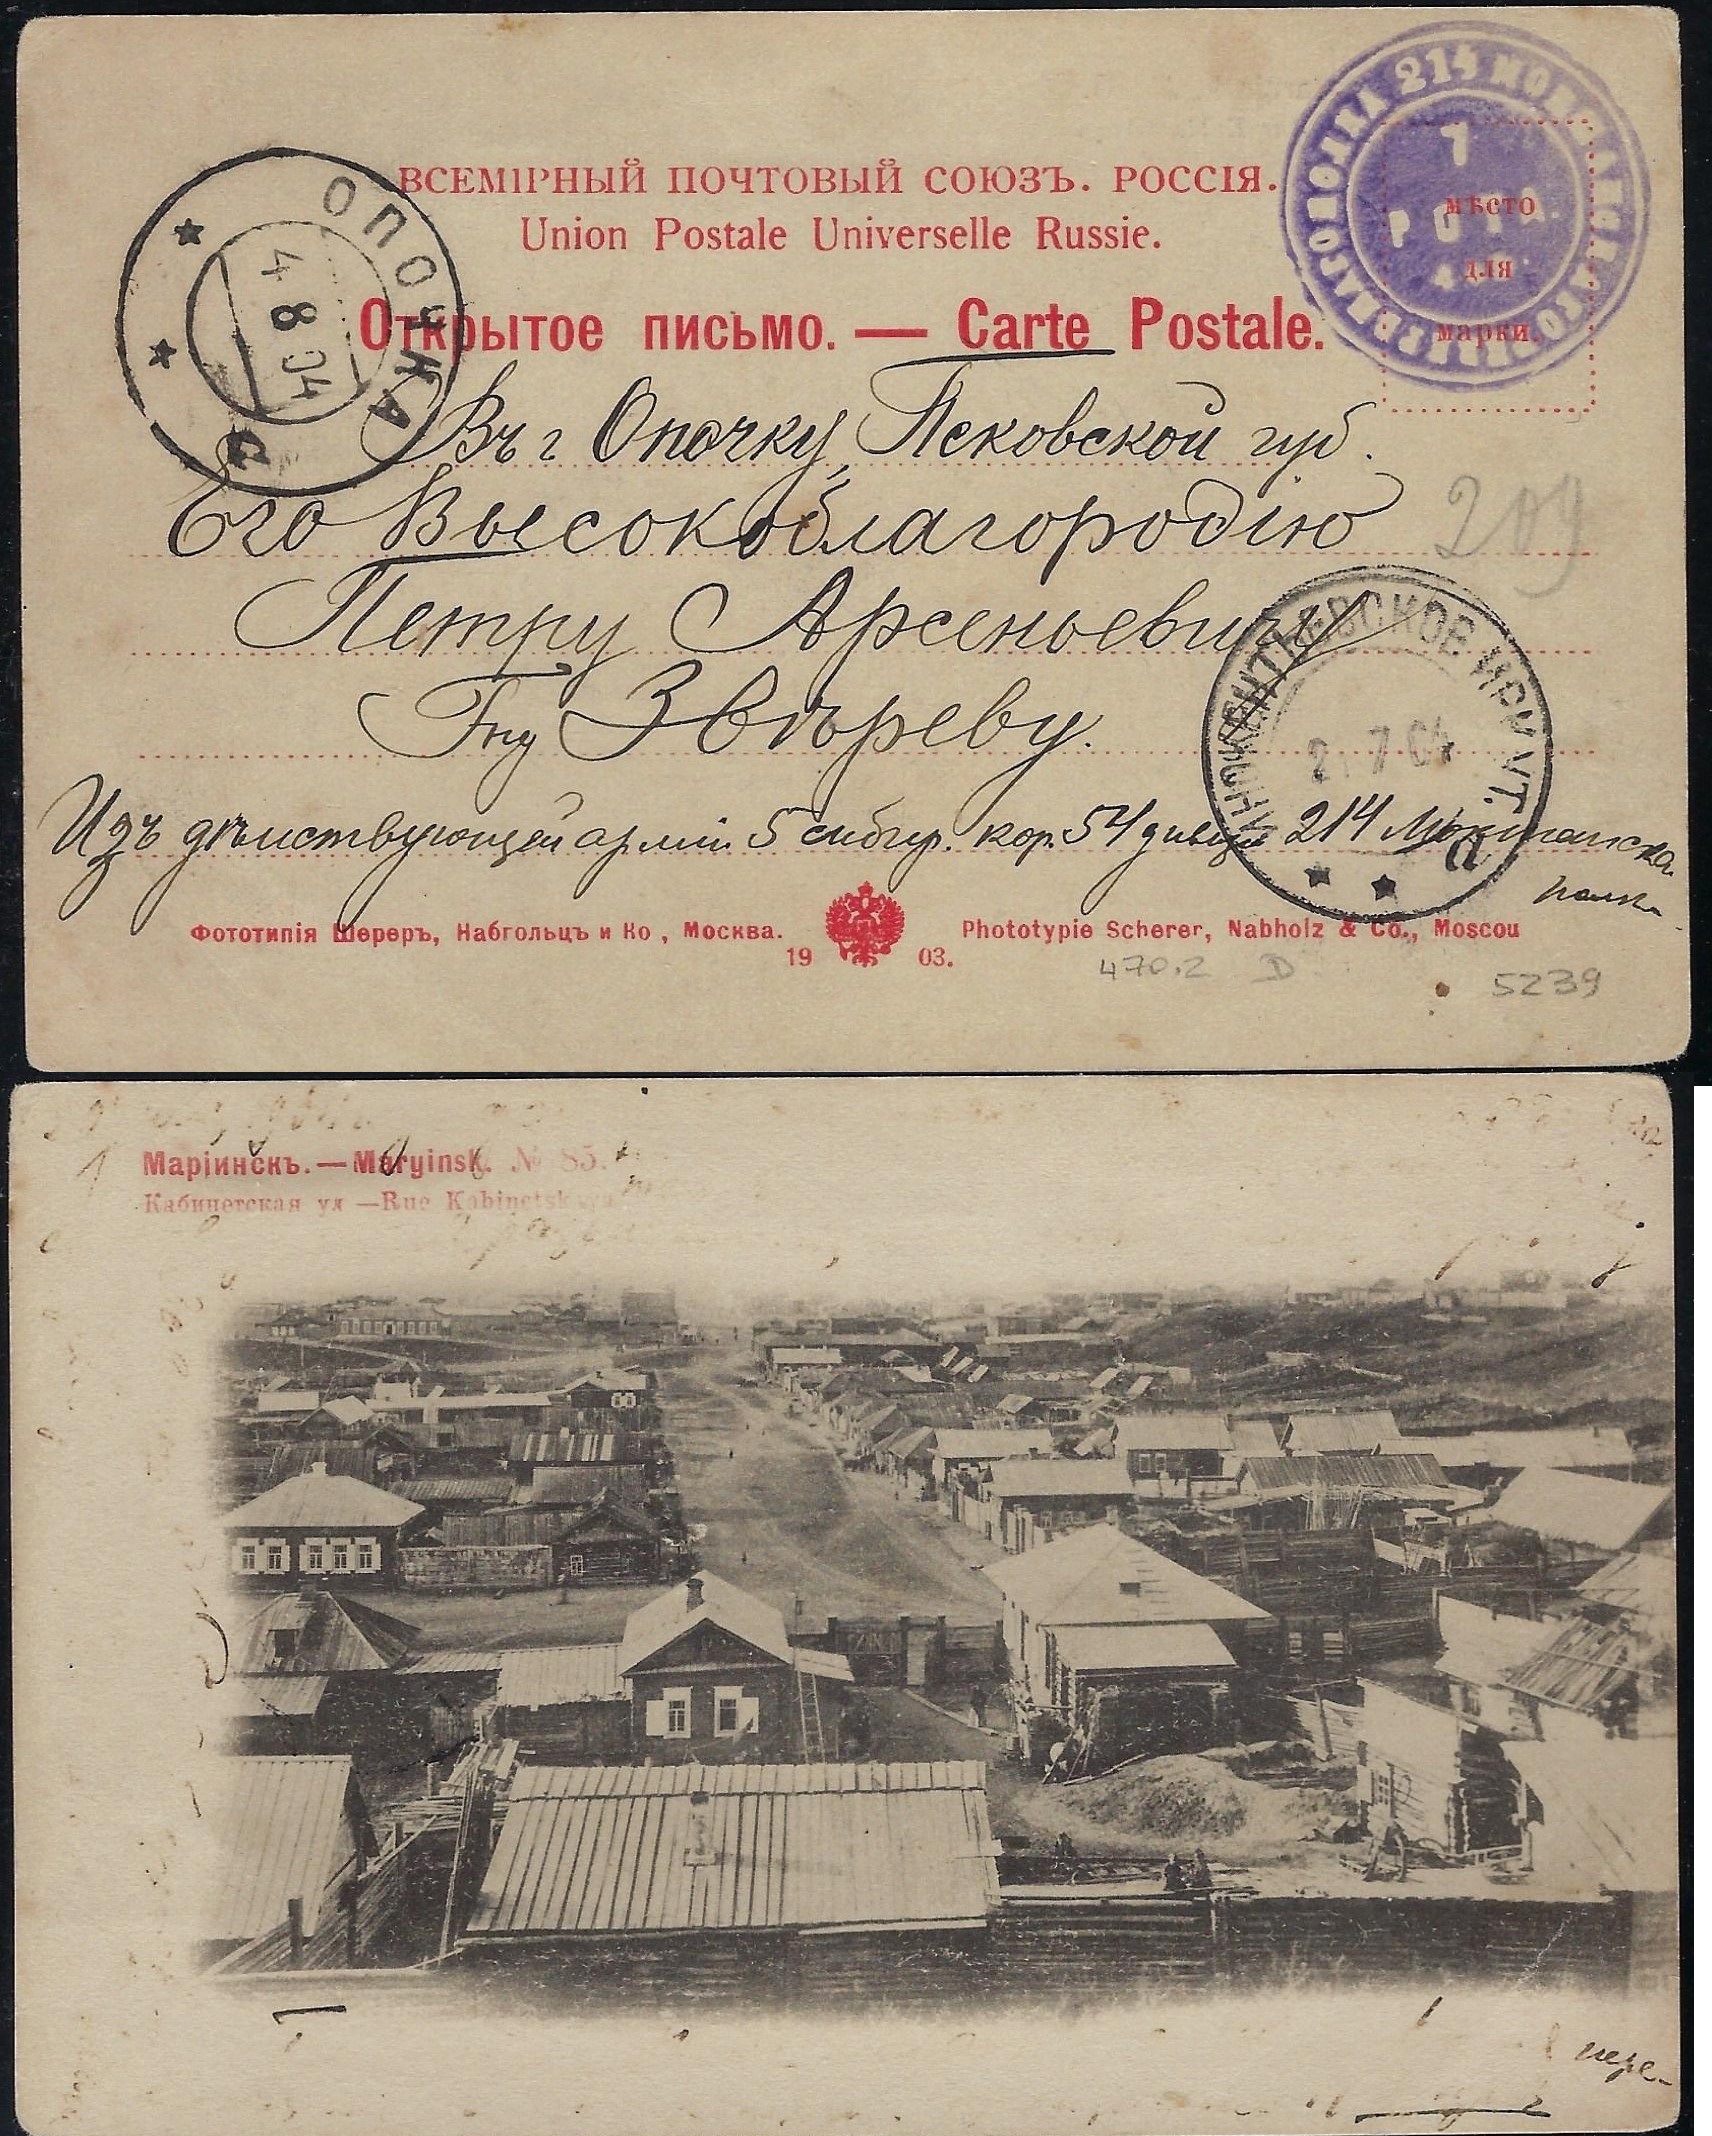 ВСЕМІРНЫЙ ПОЧТОВЫЙ СОЮЗЪ. РОССІЯ.
Union Postale Universelle Russie.
Открытое письмо. — Carte Postale.
мѣсто
для
марки.
214
РОТА
ОПОЧКА
4 8 04
Въ г Опочку, Псковской губ.
Его Высокоблагородію
Петру Арсеньевичу
Гну Звѣреву.
ИННОКЕНТЬЕВСКОЕ ИРКУТ.
7 04
Изъ дѣйствующей арміи 5 сибир. кор. 54 дивиз 214 Мокшанска
полка
209
Фототипія Шереръ, Набгольцъ и Ко, Москва.
1903.
Phototypie Scherer, Nabholz & Co., Moscou
470.2 D
5239
Маріинскъ. — Maryinsk. № 85.
Кабинетская ул — Rue Kabinetskaya